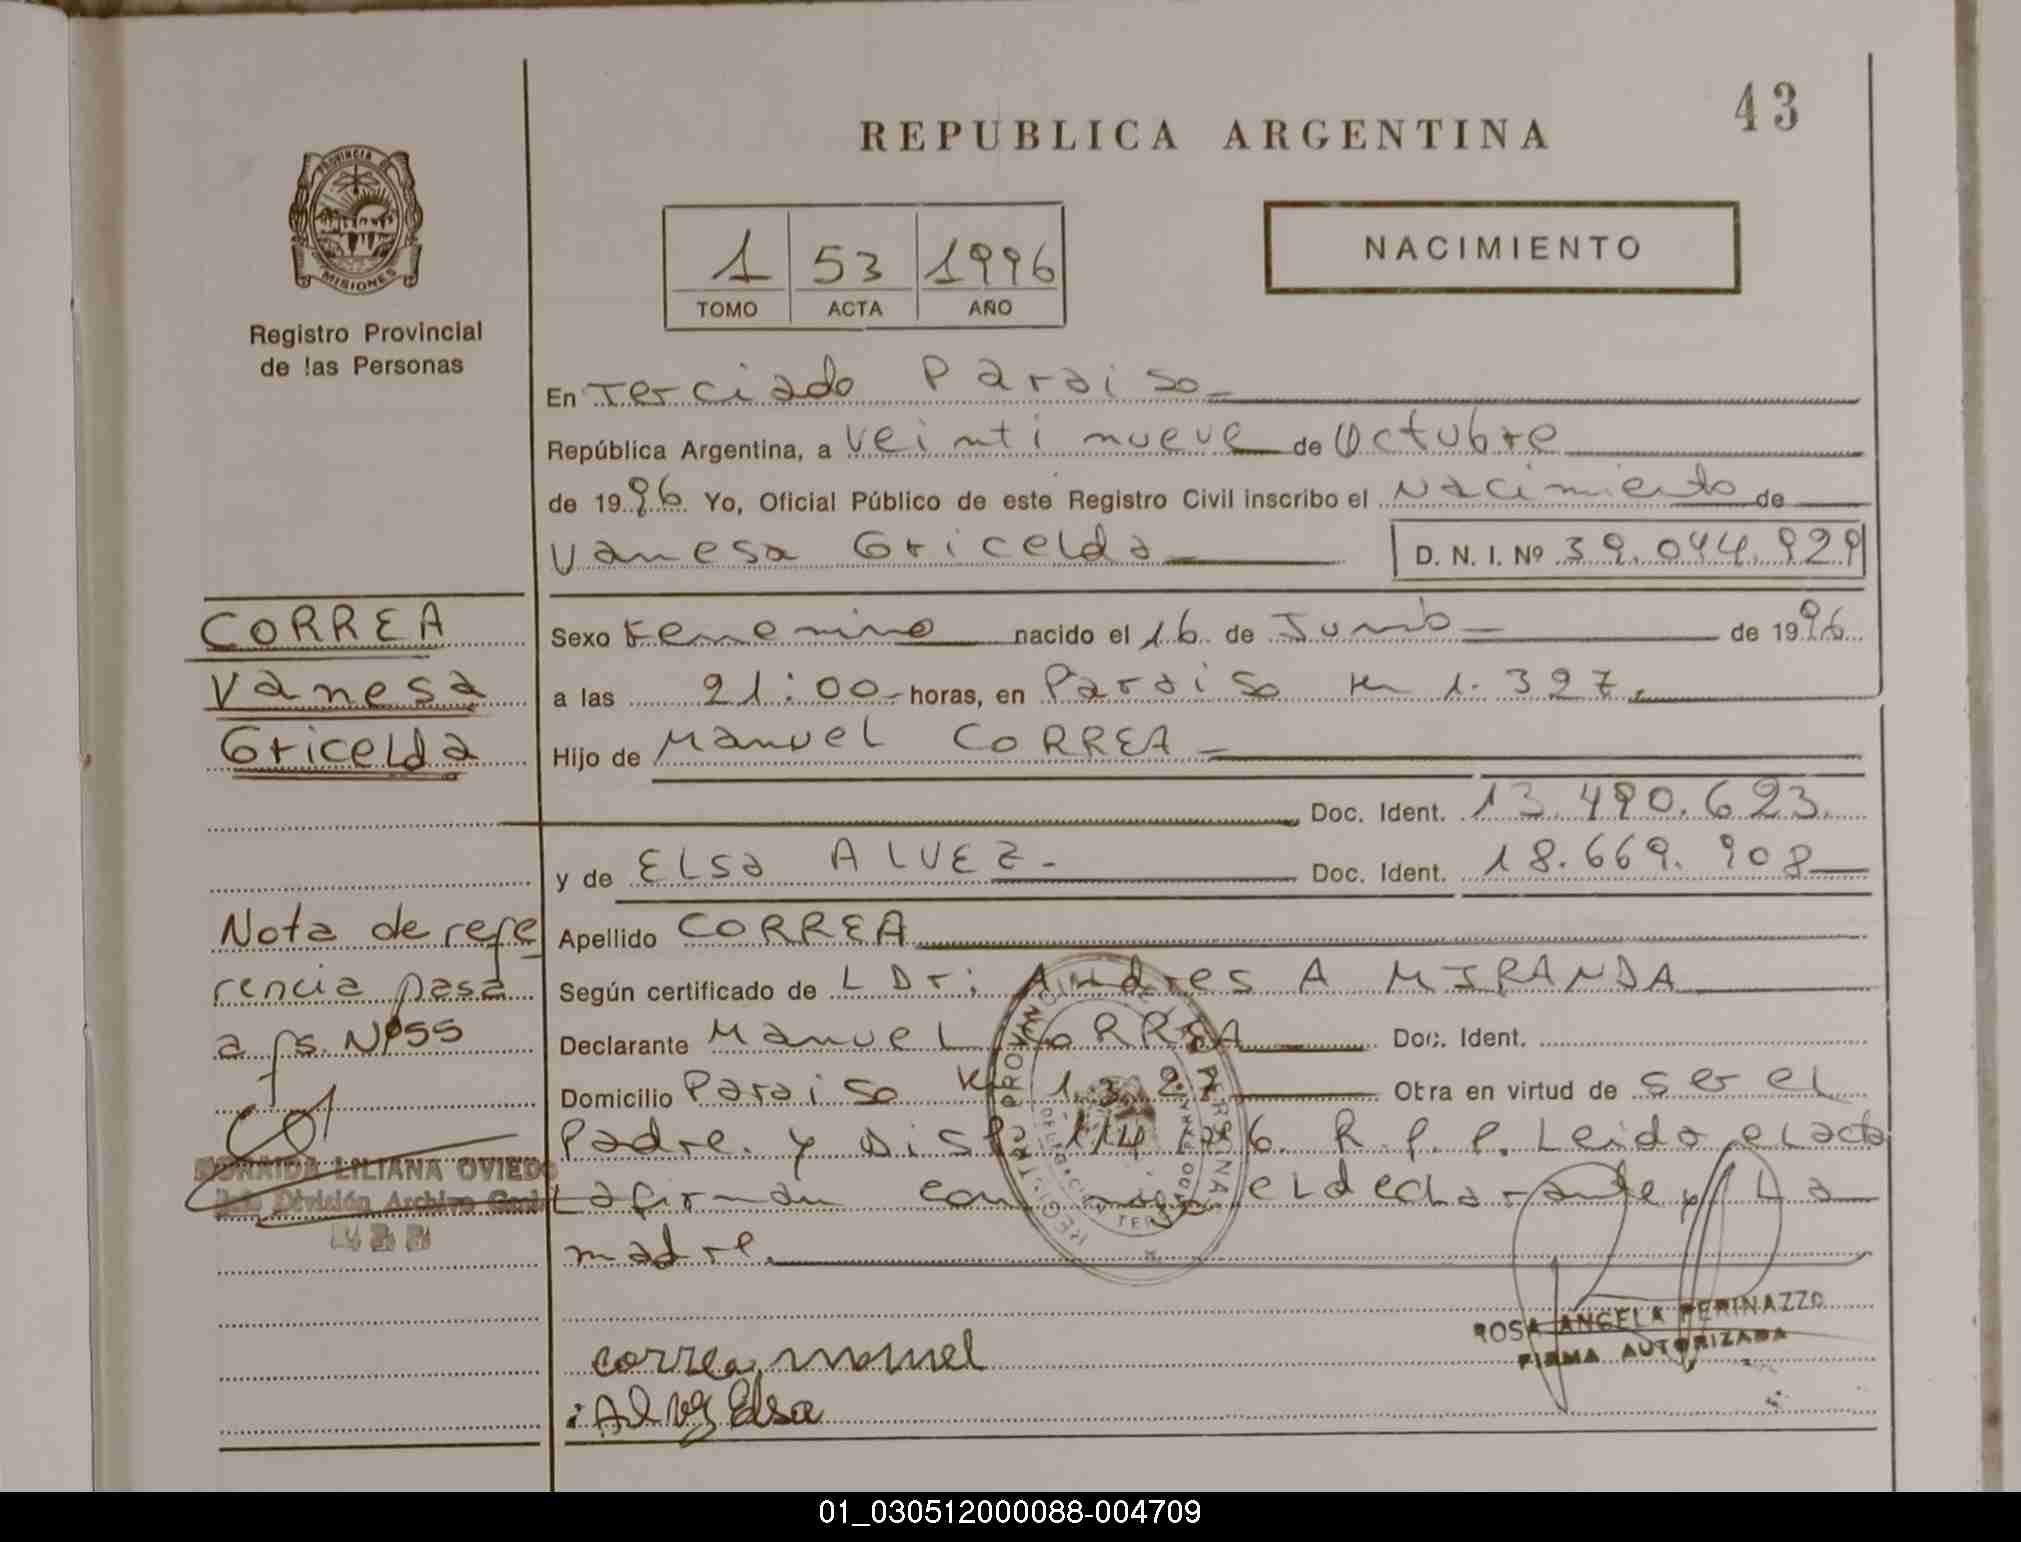 43
REPUBLICA ARGENTINA
PROVINCIA DE
MISIONES
Registro Provincial
de las Personas
1 53 1996
TOMO ACTA AÑO
NACIMIENTO
En Terciado Paraiso
República Argentina, a Veinti nueve de Octubre
de 1996 Yo, Oficial Público de este Registro Civil inscribo el Nacimiento de
Vanesa Gricelda D. N. I. Nº 39.044.929
CORREA
Vanesa
Gricelda
Sexo Femenino nacido el 16 de Junio de 1996
a las 21:00 horas, en Paraiso Km 1.327.
Hijo de Manuel CORREA
Doc. Ident. 13.490.623.
y de ELsa ALVEZ.- Doc. Ident. 18.669.908
Nota de refe
rencia pasa
a fs. Nº55
Apellido CORREA
Según certificado de L Dr: Andres A MIRANDA
Declarante Manuel CORREA Doc. Ident.
Domicilio Paraiso Km 1.327 Otra en virtud de ser el
Padre. y Disp 114 96. R.P.P. Leida el acta
La firman con migo el declarante y La
madre.
LILIANA OVIEDO
División Archivo Gral
correa manuel
Alvez Elsa
ROSA ANGELA PERINAZZO
FIRMA AUTORIZADA
01_030512000088-004709